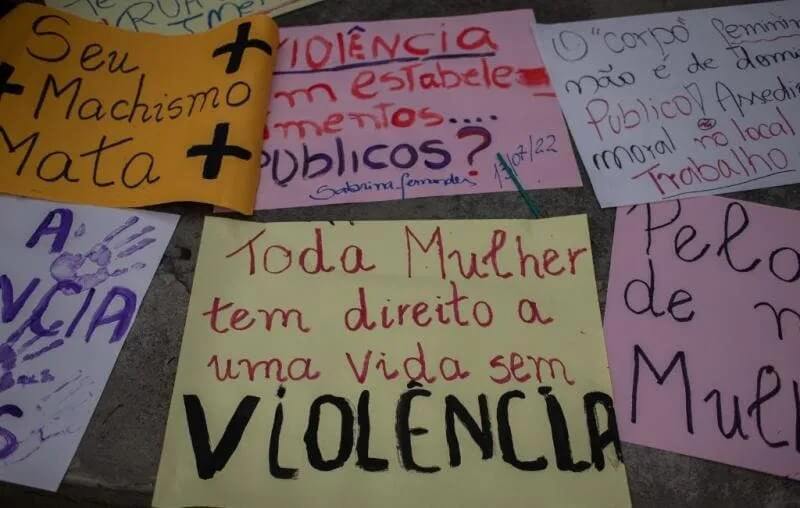 Seu
Machismo
Mata
VIOLÊNCIA
em estabele
cimentos....
PÚBLICOS?
Sabrina fernandes
17/07/22
O "corpo" feminino
não é de domí
Público! Assédio
moral no local
Trabalho
A
NCIA
S
Toda Mulher
tem direito a
uma vida sem
VIOLÊNCIA
Pelo
de
Mul